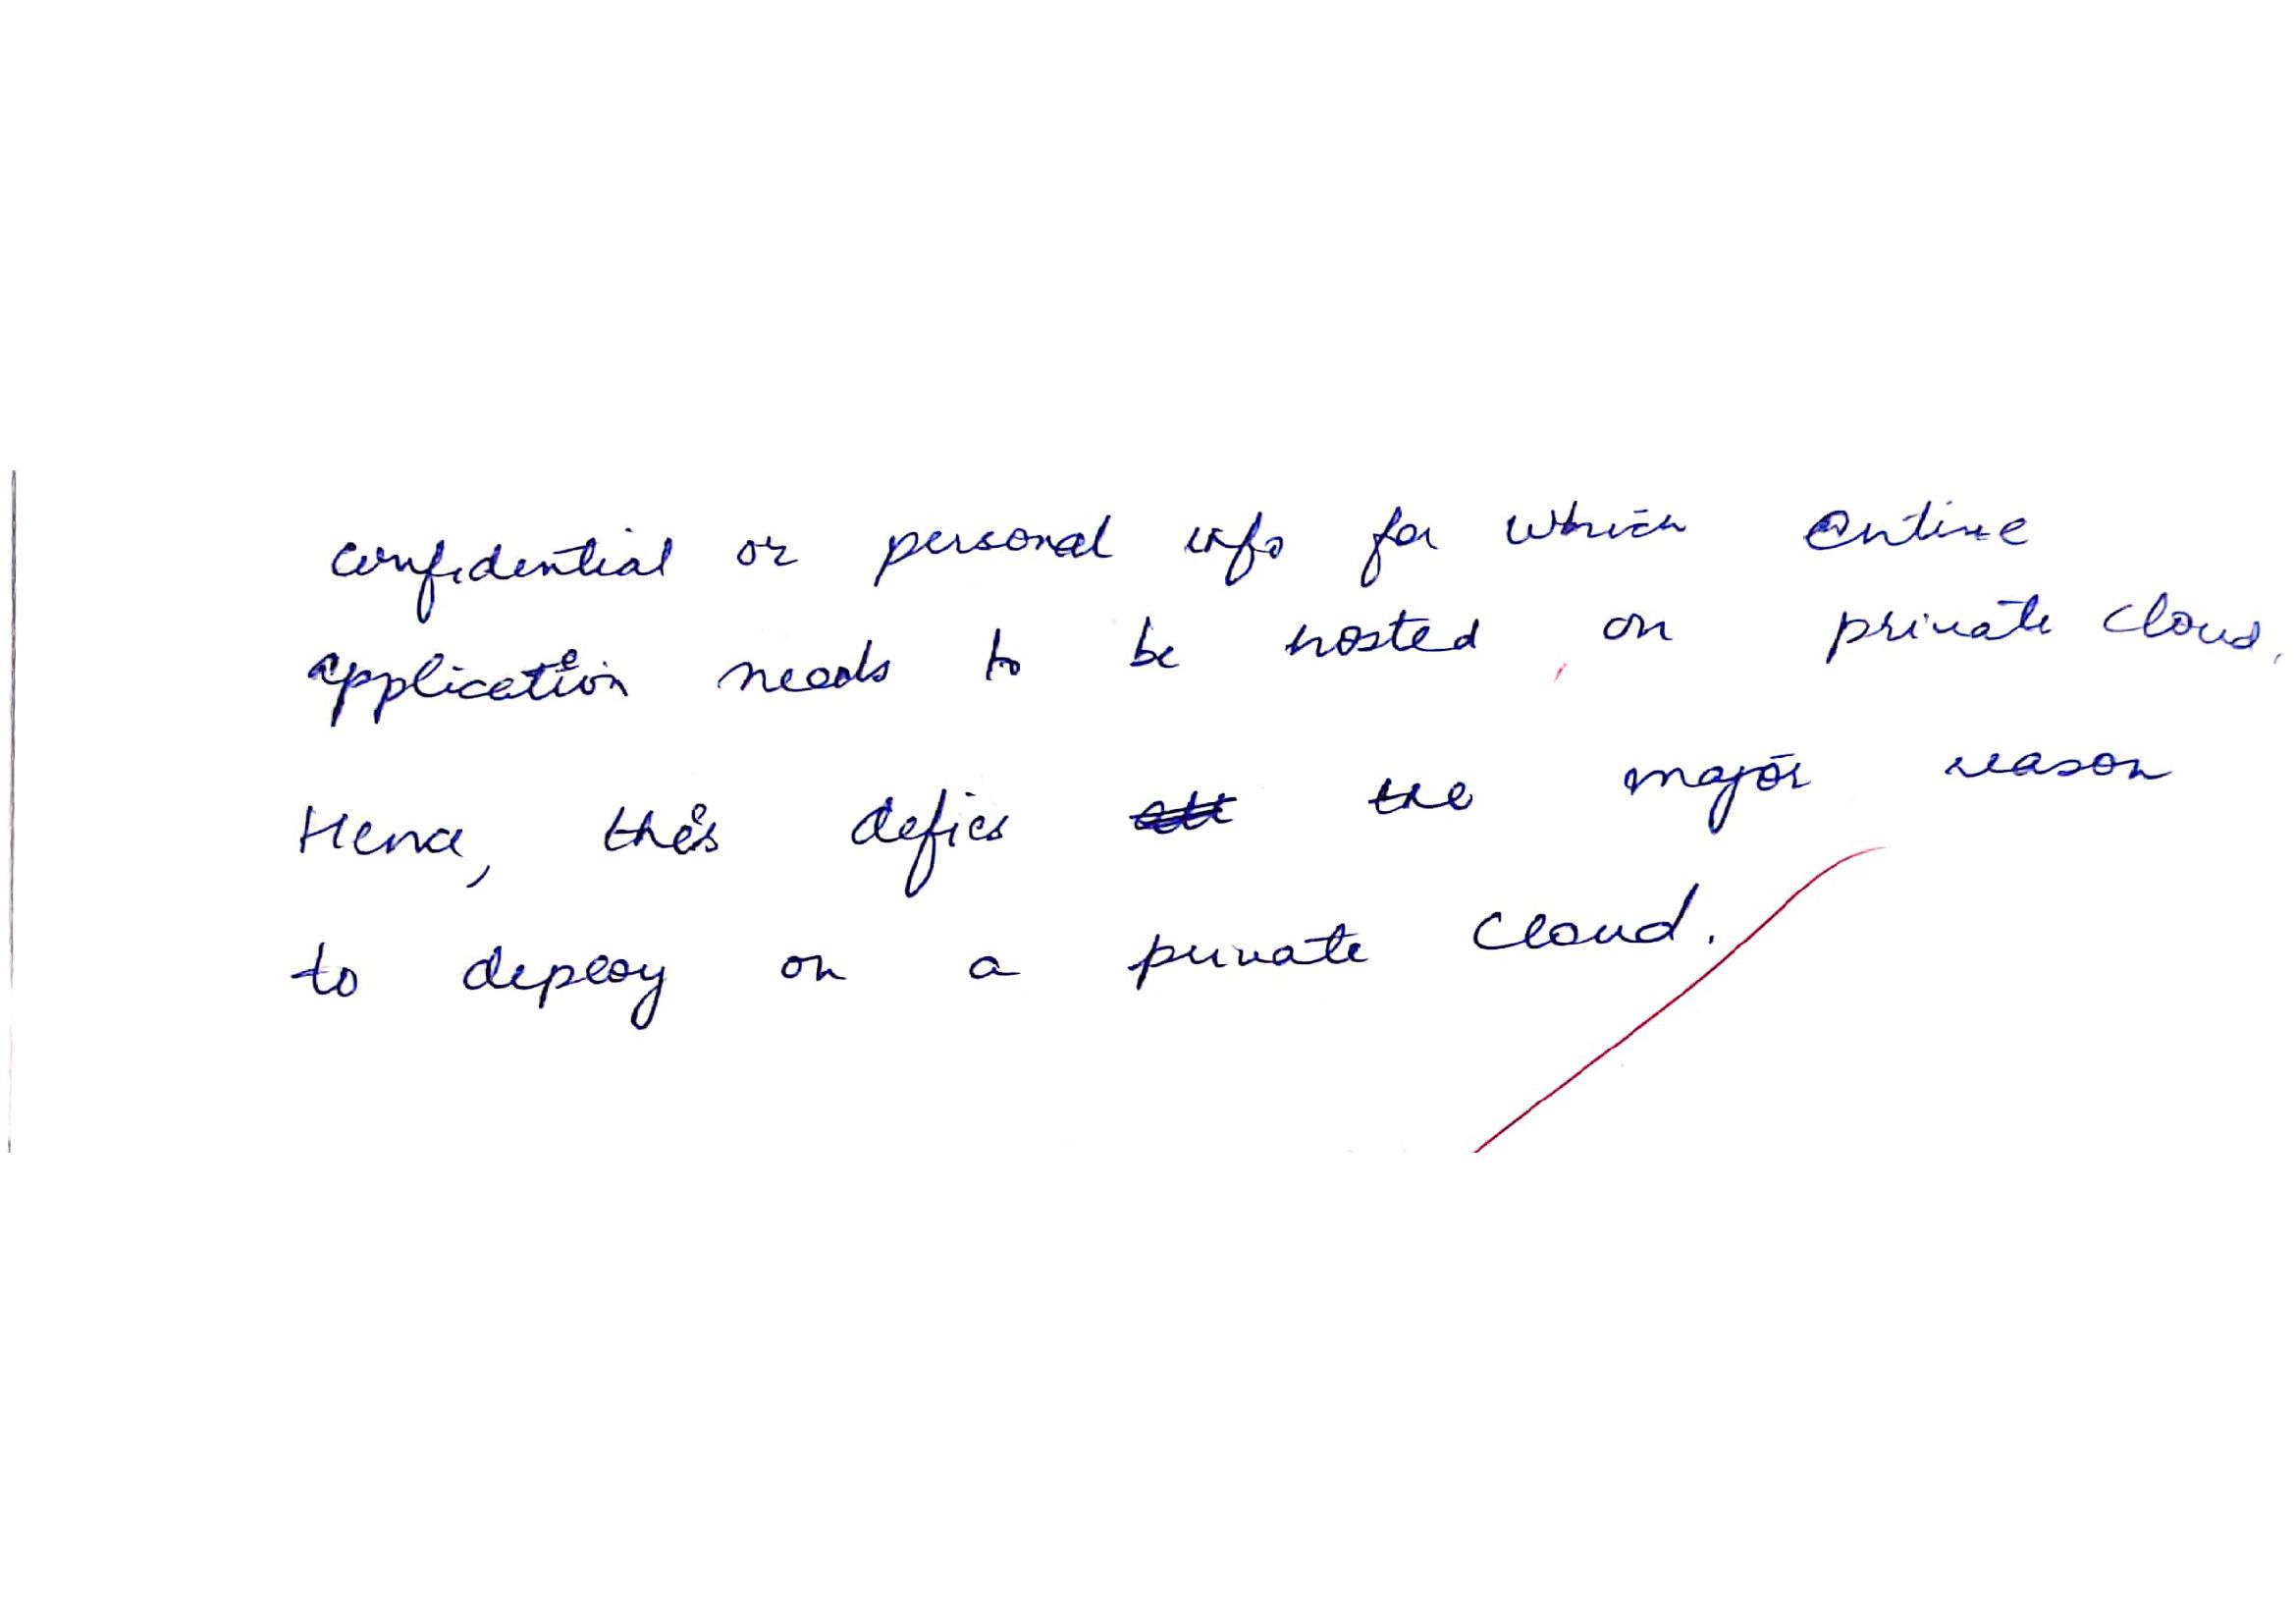 confidential or personal info for which entire
application needs to be hosted on private cloud.
Hence, this defies the major reason
to deploy on a private cloud.